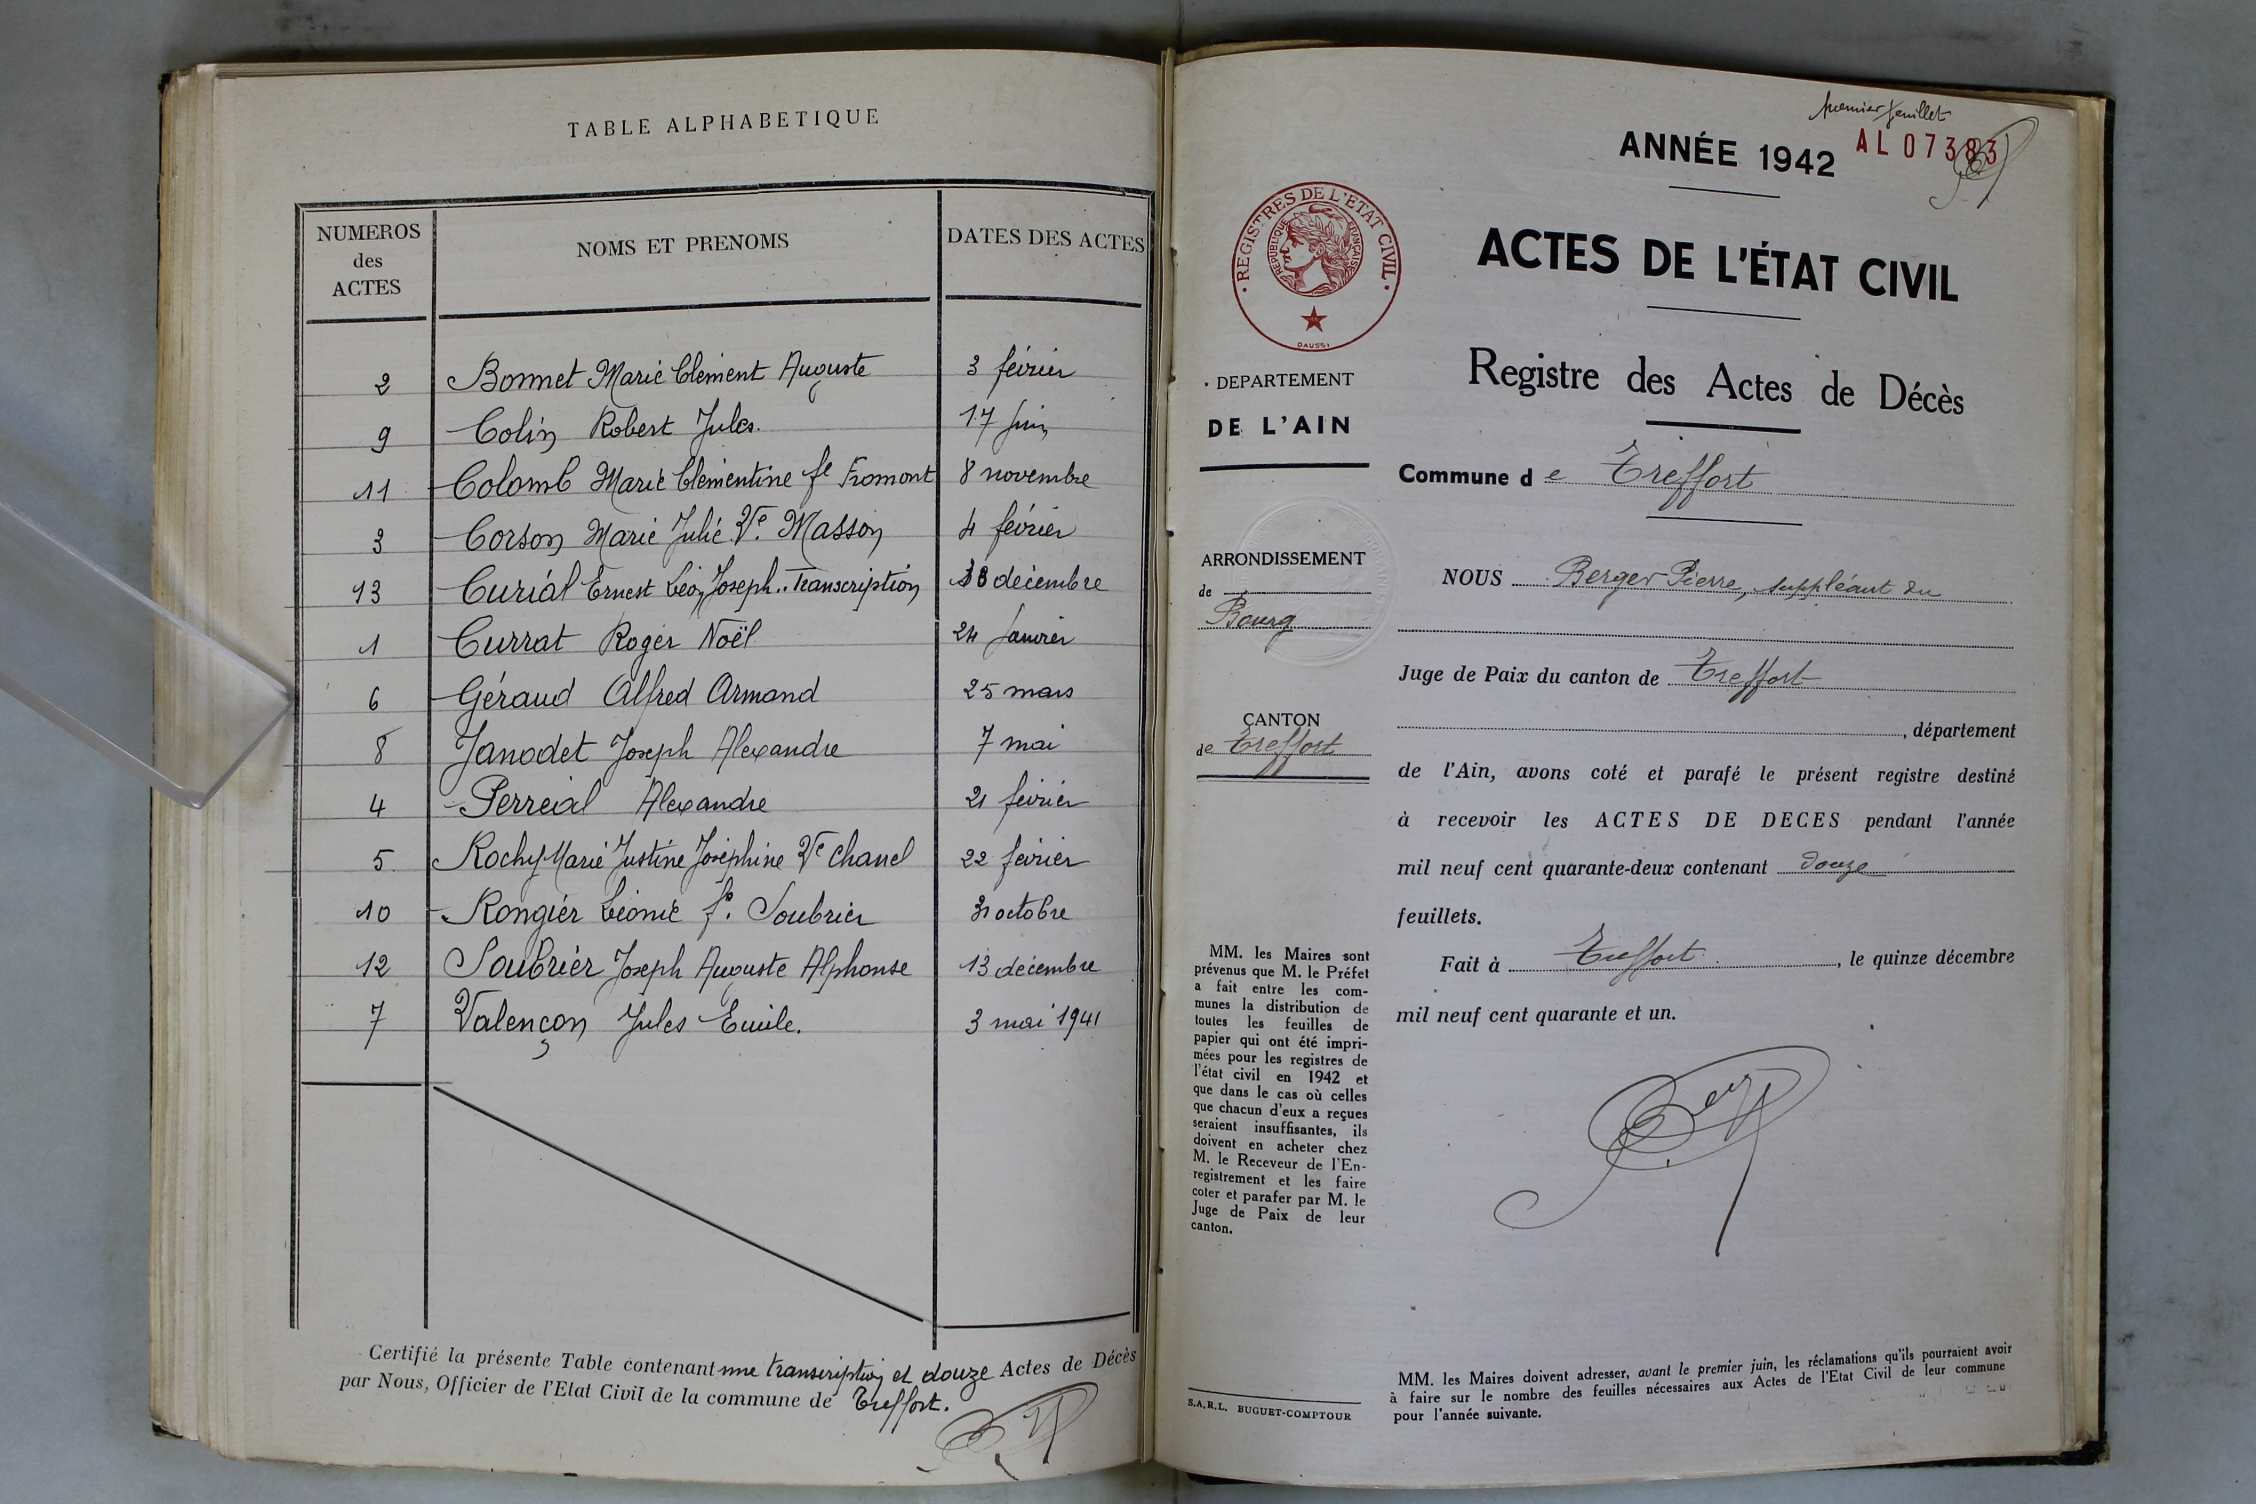 TABLE ALPHABETIQUE
NUMEROS
des
ACTES
NOMS ET PRENOMS
DATES DES ACTES
2 Bonnet Marie Clément Auguste 3 février
9 Colin Robert Jules. 17 juin
11 Colomb Marie Clémentine fe Fromont 8 novembre
3 Corson Marie Julie Ve. Masson 4 février
13 Curial Ernest Léon Joseph.. Transcription décembre
1 Currat Roger Noël 24 Janvier
6 Géraud Alfred Armand 25 mars
8 Janodet Joseph Alexandre 7 mai
4 Perréal Alexandre 21 février
5 Rochy Marie Justine Joséphine Ve Chanel 22 février
10 Rongier Léonie fe. Soubrier 31 octobre
12 Soubrier Joseph Auguste Alphonse 13 décembre
7 Valençon Jules Emile. 3 mai 1941
Certifié la présente Table contenant une transcription et douze Actes de Décès
par Nous, Officier de l'Etat Civil de la commune de Treffort.
premier feuillet
ANNÉE 1942
AL 07383
REGISTRES DE L'ETAT CIVIL
REPUBLIQUE FRANÇAISE
DAUSSI
ACTES DE L'ÉTAT CIVIL
Registre des Actes de Décès
DEPARTEMENT
DE L'AIN
Commune d e Treffort
ARRONDISSEMENT
de
Bourg
NOUS Berger Pierre, suppléant du
Juge de Paix du canton de Treffort
CANTON
de Treffort
, département
de l'Ain, avons coté et parafé le présent registre destiné
à recevoir les ACTES DE DECES pendant l'année
mil neuf cent quarante-deux contenant douze
feuillets.
Fait à Treffort, le quinze décembre
mil neuf cent quarante et un.
MM. les Maires sont
prévenus que M. le Préfet
a fait entre les com-
munes la distribution de
toutes les feuilles de
papier qui ont été impri-
mées pour les registres de
l'état civil en 1942 et
que dans le cas où celles
que chacun d'eux a reçues
seraient insuffisantes, ils
doivent en acheter chez
M. le Receveur de l'En-
registrement et les faire
coter et parafer par M. le
Juge de Paix de leur
canton.
S.A.R.L. BUGUET-COMPTOUR
MM. les Maires doivent adresser, avant le premier juin, les réclamations qu'ils pourraient avoir
à faire sur le nombre des feuilles nécessaires aux Actes de l'Etat Civil de leur commune
pour l'année suivante.